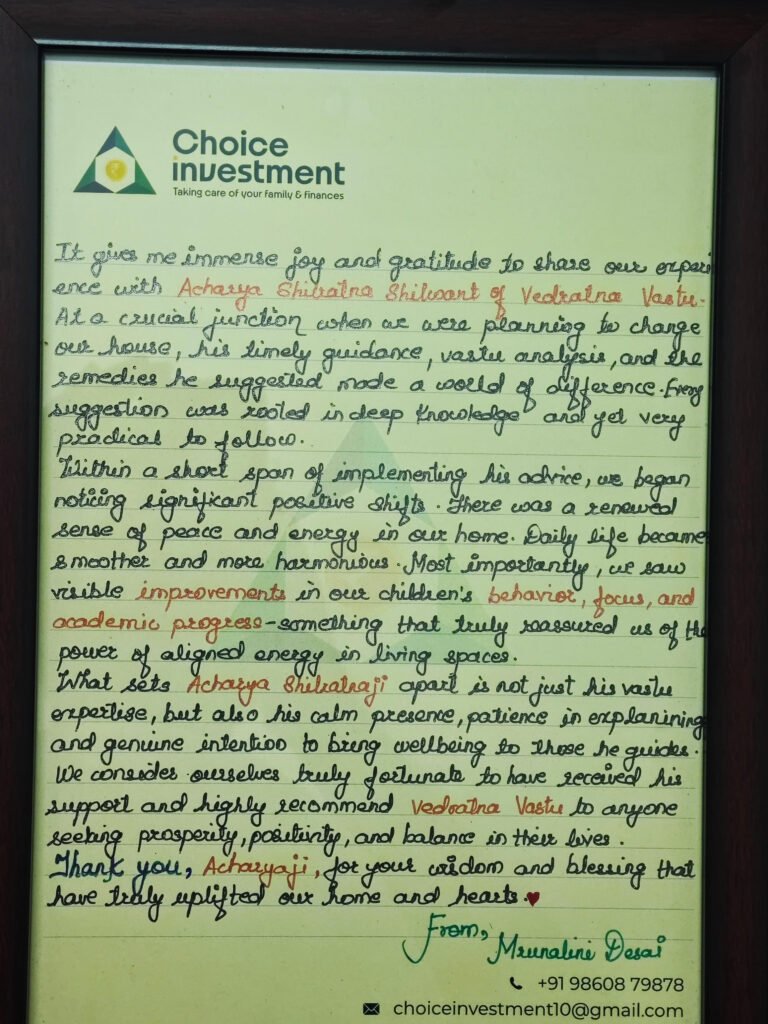 Choice
investment
Taking care of your family & finances
It gives me immense joy and gratitude to share our experi
ence with Acharya Shivratna Shilwant of Vedratna Vastu.
At a crucial junction when we were planning to change
our house, his timely guidance, vastu analysis, and the
remedies he suggested made a world of difference. Every
suggestion was rooted in deep knowledge and yet very
practical to follow.
Within a short span of implementing his advice, we began
noticing significant positive shifts. There was a renewed
sense of peace and energy in our home. Daily life became
smoother and more harmonious. Most importantly, we saw
visible improvements in our children's behavior, focus, and
academic progress-something that truly reassured us of the
power of aligned energy in living spaces.
What sets Acharya Shivratnaji apart is not just his vastu
expertise, but also his calm presence, patience in explanining
and genuine intention to bring wellbeing to those he guides.
We consider ourselves truly fortunate to have received his
support and highly recommend Vedratna Vastu to anyone
seeking prosperity, positivity, and balance in their lives.
Thank you, Acharyaji, for your wisdom and blessing that
have truly uplifted our home and hearts. ♥
From,
Mrunalini Desai
+91 98608 79878
choiceinvestment10@gmail.com